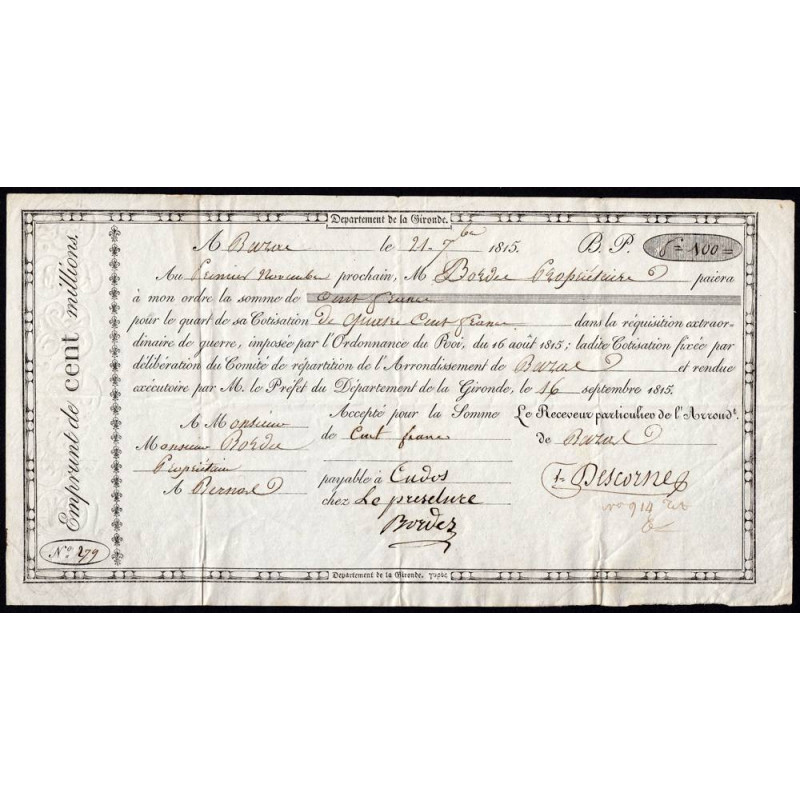 Emprunt de cent millions.
Departement de la Gironde.
A Bazas le 21 7bre 1815. B. P. f. 100
Au Premier Novembre prochain, M Bordes Propriétaire paiera
à mon ordre la somme de Cent francs
pour le quart de sa Cotisation de quatre Cent francs dans la réquisition extraor-
dinaire de guerre, imposée par l'Ordonnance du Roi, du 16 août 1815; ladite Cotisation fixée par
délibération du Comité de répartition de l'Arrondissement de Bazas et rendue
exécutoire par M. le Préfet du Département de la Gironde, le 16 septembre 1815.
A Monsieur
Monsieur Bordes
Propriétaire
A Bernos
Accepté pour la Somme
de Cent francs
payable à Cudos
chez Le
Bordes
Le Receveur particulier de l'Arrondt.
de Bazas
Descornes
No 914
No 279
Departement de la Gironde.